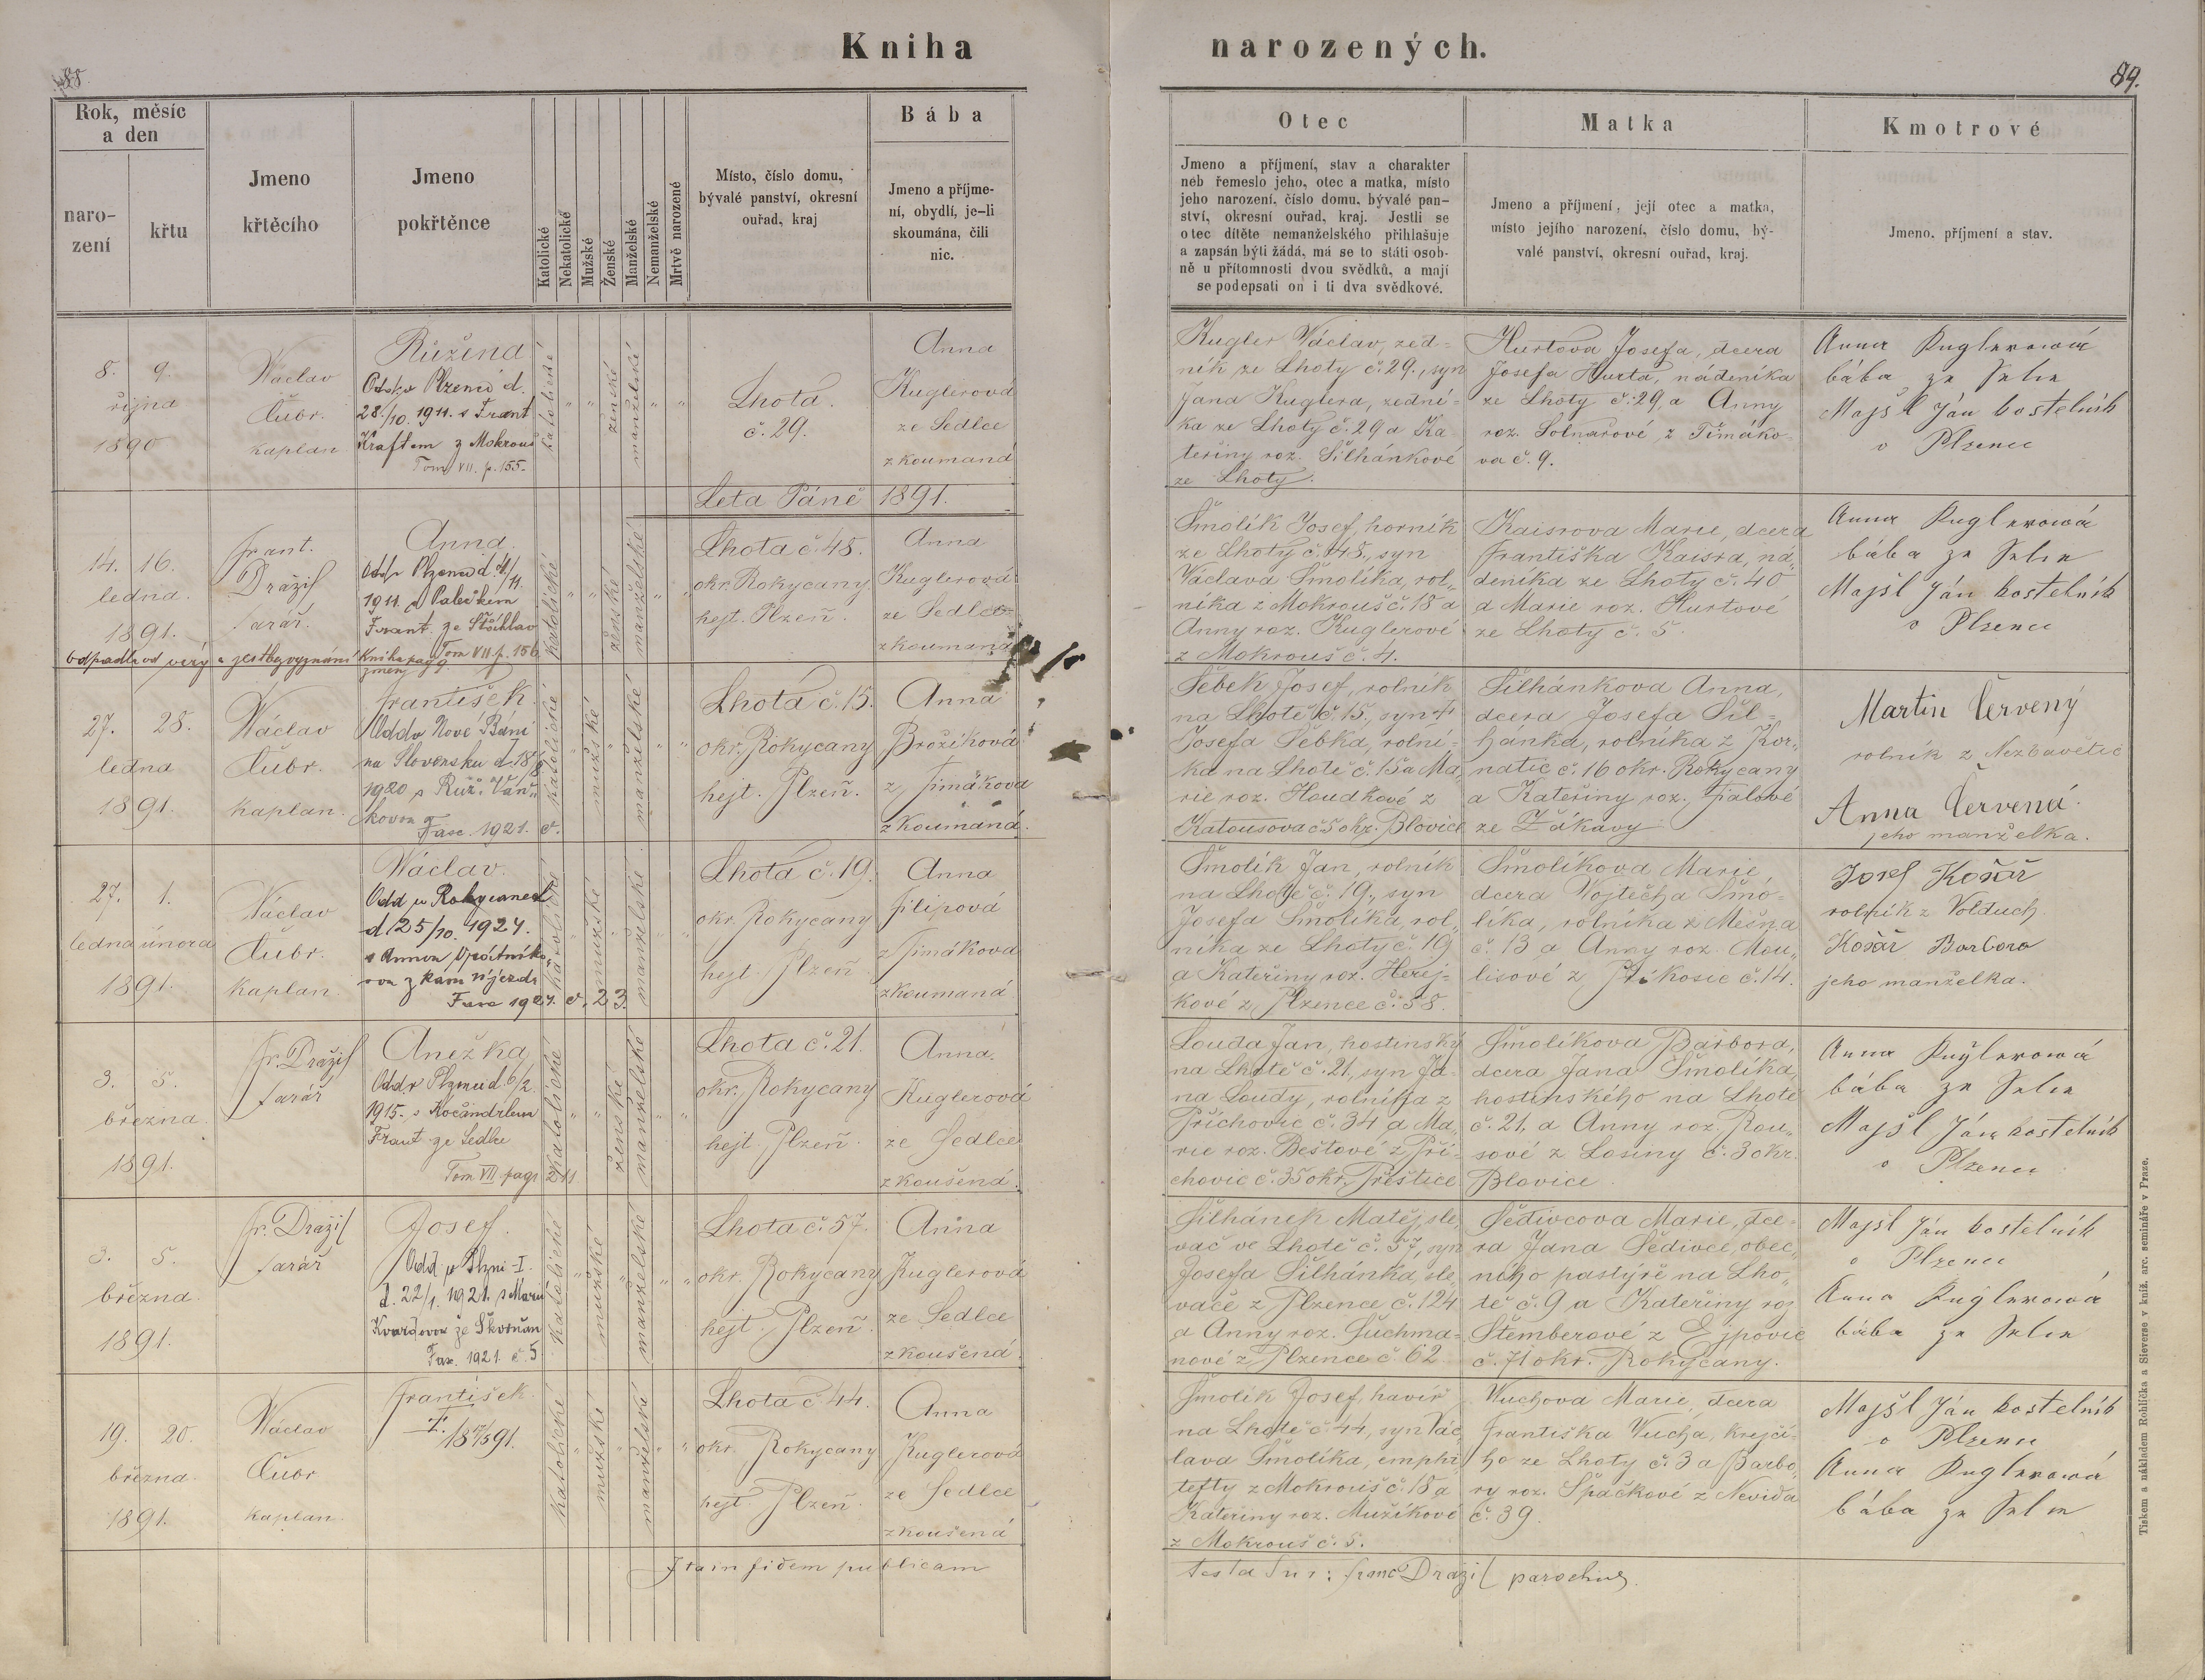 Kniha narozených.
88
89.
Rok, měsíc
a den
naro-
zení
křtu
Jmeno
křtěcího
Jmeno
pokřtěnce
Katolické
Nekatolické
Mužské
Ženské
Manželské
Nemanželské
Mrtvě narozené
Místo, číslo domu,
bývalé panství, okresní
ouřad, kraj
Bába
Jmeno a příjme-
ní, obydlí, je-li
skoumána, čili
nic.
Otec
Jmeno a příjmení, stav a charakter
neb řemeslo jeho, otec a matka, místo
jeho narození, číslo domu, bývalé pan-
ství, okresní ouřad, kraj. Jestli se
otec dítěte nemanželského přihlašuje
a zapsán býti žádá, má se to státi osob-
ně u přítomnosti dvou svědků, a mají
se podepsati on i ti dva svědkové.
Matka
Jmeno a příjmení, její otec a matka,
místo jejího narození, číslo domu, bý-
valé panství, okresní ouřad, kraj.
Kmotrové
Jmeno, příjmení a stav.
8. 9.
října
1890
Václav
Čubr.
kaplan
Růžena
28./10. 1911. s Frant
Kraftem z Mokrouš
Tom VII. p. 155.
katolické
ženské
manželské
Lhota.
č. 29.
Anna
Kuglerová
ze Sedlce
zkoumaná
Kugler Václav, zed-
ník ze Lhoty č. 29., syn
Jana Kuglera, zední-
ka ze Lhoty č. 29 a Ka
teřiny roz. Šilhánkové
ze Lhoty.
Hurtova Josefa, dcera
Josefa Hurta, nádeníka
ze Lhoty č. 29, a Anny
roz. Solnařové z Timáko-
va č. 9.
Anna Kuglerowá
bába ze Selce
Majšl Ján kostelník
v Plzenci
Leta Páně 1891.
14. 16.
ledna.
1891.
Frant.
Dražil
farář.
Anna.
1911. s Palečkem
Frant. ze Štáhlav
Tom VII p. 156
Odpadla od víry a jest bez vyznání Kniha pag 9
změn
katolické
ženské
manželské
Lhota č. 48.
okr. Rokycany
hejt. Plzeň.
Anna
Kuglerová
ze Sedlce
zkoumaná
Šmolík Josef, horník
ze Lhoty č. 48., syn
Václava Šmolíka, rol-
níka z Mokrouš č. 18 a
Anny roz. Kuglerové
z Mokrouš č. 4.
Kaisrova Marie, dcera
Františka Kaisra, ná-
deníka ze Lhoty č. 40
a Marie roz. Hurtové
ze Lhoty č. 5.
Anna Kuglerowá
bába ze Selce
Majšl Ján kostelník
v Plzenci
27. 28.
ledna
1891.
Václav
Čubr.
kaplan.
František
Oddv Nové Báni
na Slovensku d. 18/8
1920 s Růž. Vaň-
kovou
Fasc. 1921. č.
katolické
mužské
manželské
Lhota č. 15.
okr. Rokycany
hejt. Plzeň.
Anna
Brožíková
z Timákova
zkoumaná.
Šebek Josef, rolník
na Lhotě č. 15., syn †
Josefa Šebka, rolní-
ka na Lhotě č. 15 a Ma-
rie roz. Houdkové z
Katousova č 5 okr. Blovice
Šilhánkova Anna,
dcera Josefa Šil-
hánka, rolníka z Kor-
natic č. 16 okr. Rokycany
a Kateřiny roz. Fialové
ze Žákavy
Martin Červený
rolník z Nezbavětic
Anna Červená.
jeho manželka.
27. 1.
ledna února
1891.
Václav
Čubr.
kaplan.
Václav.
Odd v Rokycanech
d 25/10. 1924.
z kam Újezda
Fasc 1924. č. 23.
katolické
mužské
manželské
Lhota č. 19.
okr. Rokycany
hejt. Plzeň
Anna
Filipová
z Timákova
zkoumaná
Šmolík Jan, rolník
na Lhotě č. 19., syn
Josefa Šmolíka, rol-
níka ze Lhoty č. 19
a Kateřiny roz. Herej-
kové z Plzence č. 58.
Šmolíkova Marie
dcera Vojtěcha Šmo-
líka, rolníka z Mešna
č. 13 a Anny roz. Mou-
lisové z Příkosic č. 14.
Josef Košař
rolník z Volduch.
Košař Barbora
jeho manželka.
3. 5.
března.
1891.
Fr. Dražil
farář
Anežka
Oddv Plzenci d. 6/2.
1915. s Kočandrlem
Frant ze Sedlce
Tom VII pag 211
katolické
ženské
manželské
Lhota č. 21.
okr. Rokycany
hejt. Plzeň.
Anna.
Kuglerová
ze Sedlce
zkoušená.
Louda Jan, hostinský
na Lhotě č. 21., syn Ja-
na Loudy, rolníka z
Příchovic č. 34 a Ma-
rie roz. Beštové z Pří-
chovic č. 35 okr. Přeštice
Šmolíkova Barbora,
dcera Jana Šmolíka,
hostinského na Lhotě
č. 21. a Anny roz. Rou-
sové z Losiny č. 3 okr.
Blovice.
Anna Kuglerowá
bába ze Selce
Majšl Ján kostelník
v Plzenci
3. 5.
března.
1891.
Fr. Dražil
farář
Josef.
Odd. v Plzni-I.
d. 22/1. 1921. s Marií
ze Skvrňan
Fasc. 1921. č. 5
katolické
mužské
manželské
Lhota č. 57.
okr. Rokycany
hejt. Plzeň.
Anna
Kuglerová
ze Sedlce
zkoušená.
Šilhánek Matěj, sle-
vač ve Lhotě č. 57, syn
Josefa Šilhánka, sle-
vače z Plzence č. 124
a Anny roz. Suchma-
nové z Plzence č 62
Šedivcova Marie, dce-
ra Jana Šedivce, obec-
ního pastýře na Lho-
tě č. 9 a Kateřiny roz
Štemberové z Ejpovic
č. 71 okr. Rokycany.
Majšl Ján kostelník
v Plzenci
Anna Kuglerowá
bába ze Selce
19. 20.
března.
1891.
Václav
Čubr
kaplan.
František.
katolické
mužské
manželské
Lhota č 44.
okr. Rokycany
hejt. Plzeň.
Anna
Kuglerová
ze Sedlce
zkoušená
Šmolík Josef, havíř
na Lhotě č. 44, syn Vác-
lava Šmolíka, emphi-
tefty z Mokrouš č. 18 a
Kateřiny roz. Mužíkové
z Mokrouš č. 5.
Wuchova Marie, dcera
Františka Wucha, krejčí-
ho ze Lhoty č. 3 a Barbo-
ry roz. Špačkové z Nevida
č. 39.
Majšl Ján kostelník
v Plzenci
Anna Kuglerowá
bába ze Selce
Ita in fidem publicam
testatur: Franc Dražil parochus.
Tiskem a nákladem Rohlíčka a Sieverse v kníž. arc. semináře v Praze.